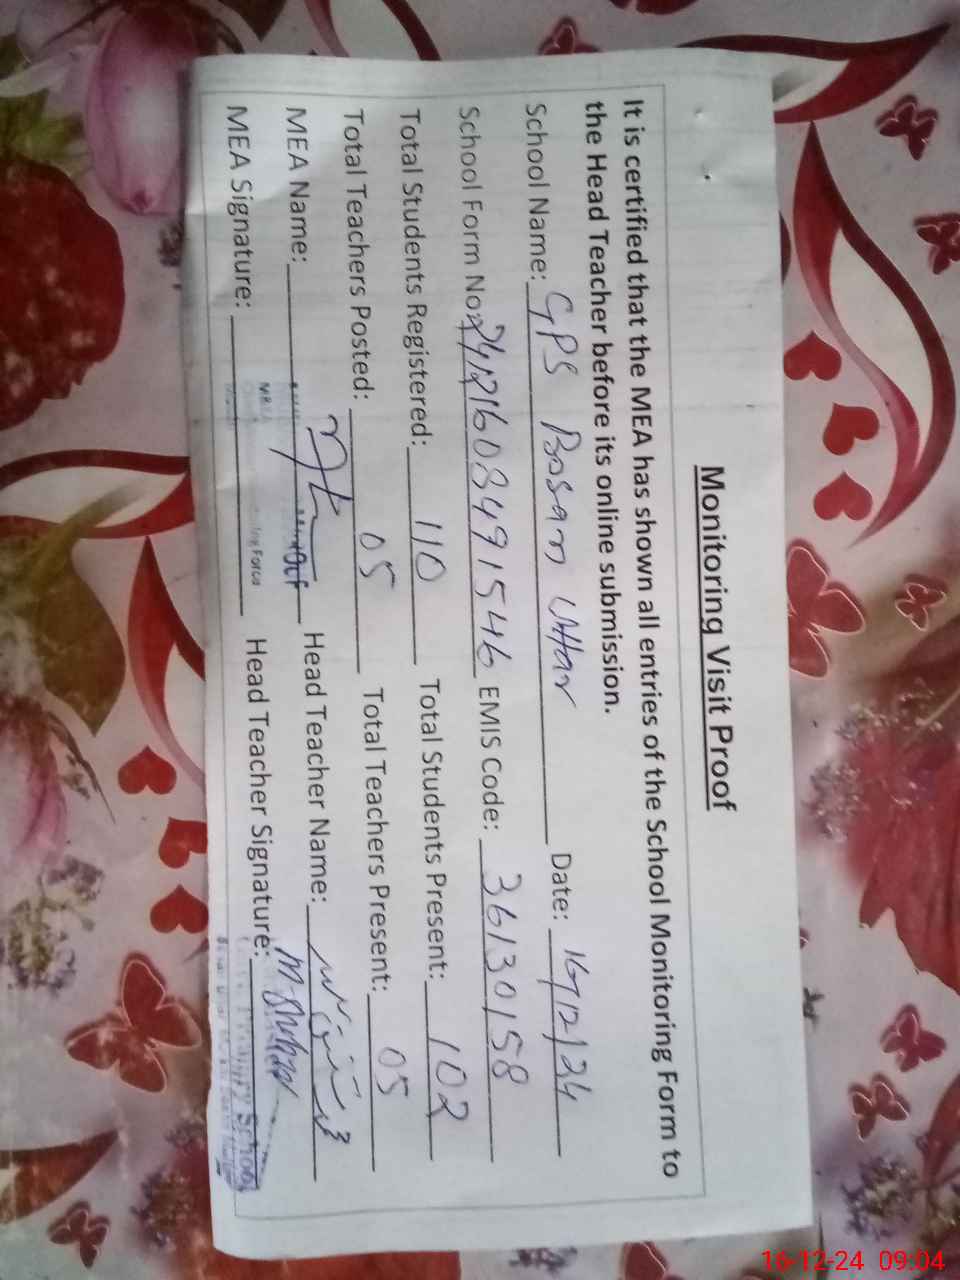 Monitoring Visit Proof
It is certified that the MEA has shown all entries of the School Monitoring Form to
the Head Teacher before its online submission.
School Name: GPS Basam Uttar Date: 16/12/24
School Form No: 24121608491546 EMIS Code: 36130158
Total Students Registered: 110 Total Students Present: 102
Total Teachers Posted: 05 Total Teachers Present: 05
MEA Name: Head Teacher Name:
MEA Signature: Head Teacher Signature:
School
16-12-24 09:04